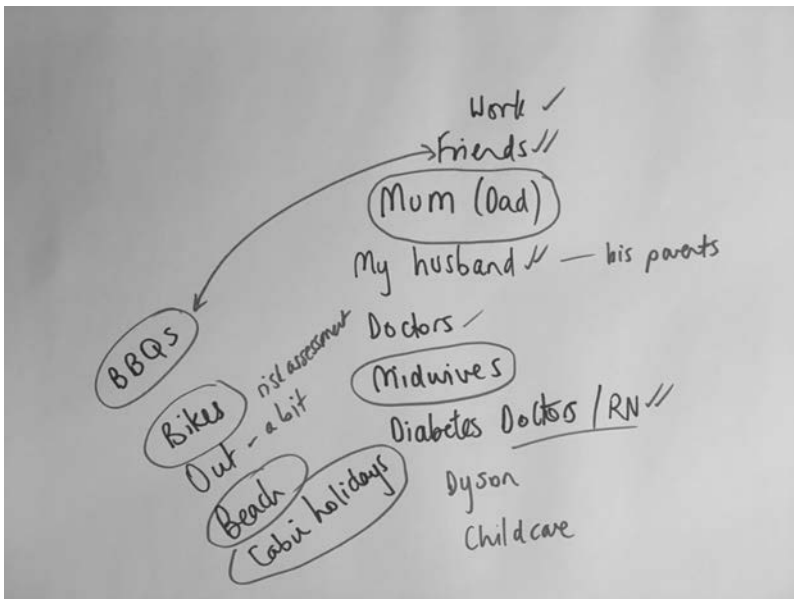 Work ✓
Friends ✓✓
Mum (Dad)
My husband ✓✓ — his parents
Doctors ✓
Midwives
Diabetes Doctors / RN ✓✓
Dyson
Childcare
BBQs
Bikes
risk assessment
Out - a bit
Beach
Cabin holidays